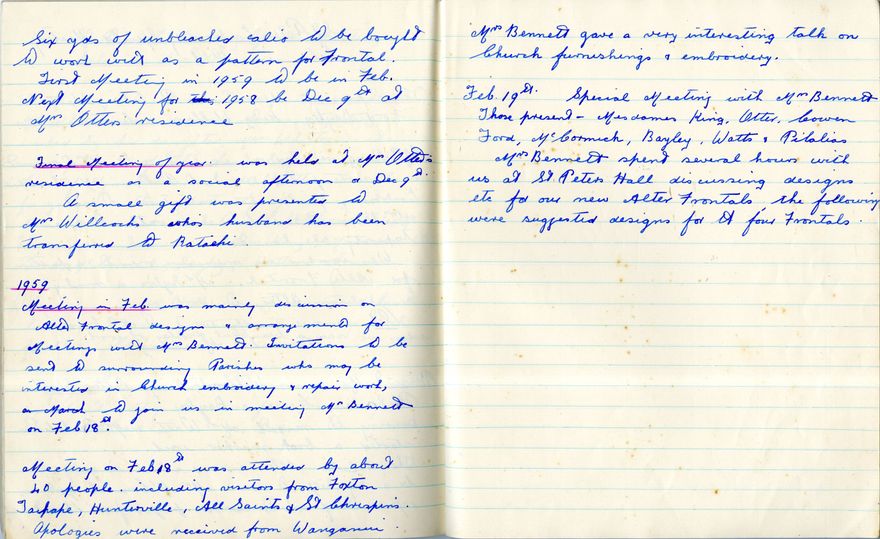 Six yds of unbleached calio to be bought
to work with as a pattern for Frontal.
First Meeting in 1959 to be in Feb.
Next Meeting for 1958 be Dec 9th at
Mrs Otters residence
Final Meeting of year. was held at Mrs Otter's
residence as a social afternoon on Dec 9th.
A small gift was presented to
Mrs Willcocks whos husband has been
transferred to Rataehi.
1959
Meeting in Feb. was mainly discussion on
Alter Frontal designs & arrangements for
Meetings with Mrs Bennett. Invitations to be
sent to surrounding Parishes who may be
interested in Church embroidery & repair work,
on March to join us in meeting Mrs Bennett
on Feb 18th.
Meeting on Feb 18th was attended by about
40 people. including visitors from Foxton
Taihape, Hunterville, All Saints & St Chrispins.
Apologies were received from Wanganui.
Mrs Bennett gave a very interesting talk on
Church furnishings & embroidery.
Feb. 19th. Special Meeting with Mrs Bennett
Those present – Mesdames King, Otter, Cowen
Ford, McCormick, Bayley, Watts &
Mrs Bennett spent several hours with
us at St Peters Hall discussing designs
etc for our new Alter Frontals, the following
were suggested designs for four Frontals.